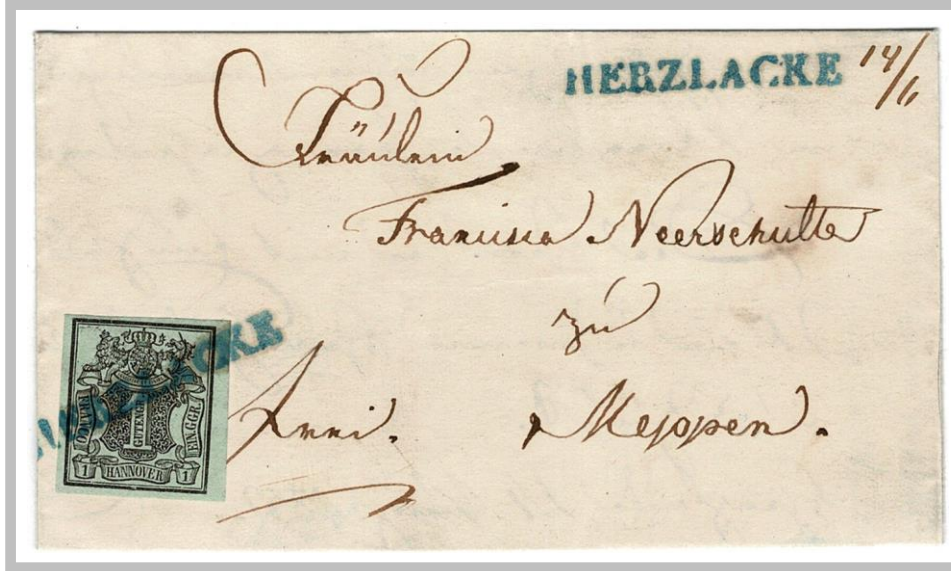 HERZLACKE 14/6
Fräulein
Francisca Neerschulte
zu
Meppen.
frei.
HERZLACKE
1 GUTENGR.
EIN GGR.
1 HANNOVER 1